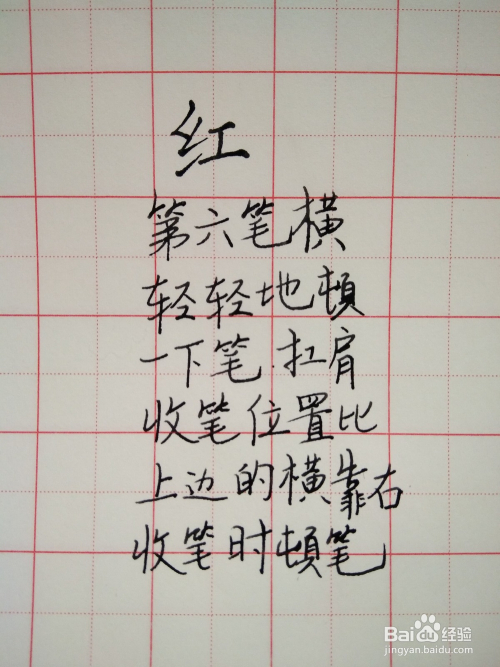 红
第六笔横
轻轻地頓
一下笔.扛肩
收笔位置比
上边的横靠右
收笔时頓笔
Baidu经验
jingyan.baidu.com